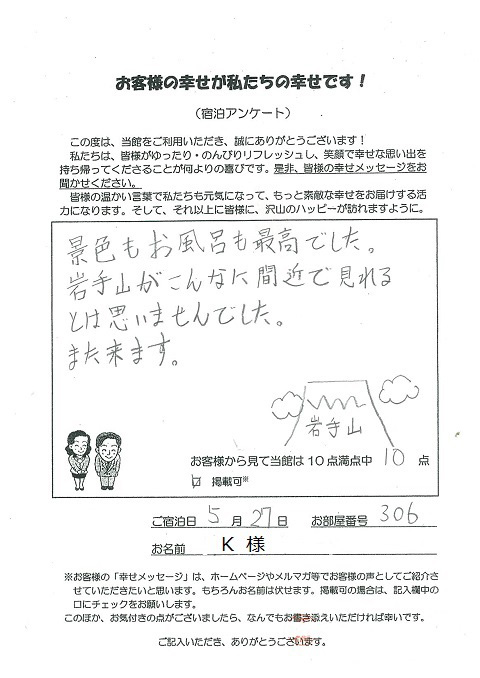 お客様の幸せが私たちの幸せです！
（宿泊アンケート）
この度は、当館をご利用いただき、誠にありがとうございます！
私たちは、皆様がゆったり・のんびりリフレッシュし、笑顔で幸せな思い出を
持ち帰ってくださることが何よりの喜びです。是非、皆様の幸せメッセージをお
聞かせください。
皆様の温かい言葉で私たちも元気になって、もっと素敵な幸せをお届けする活
力になります。そして、それ以上に皆様に、沢山のハッピーが訪れますように。
景色もお風呂も最高でした。
岩手山がこんなに間近で見れる
とは思いませんでした。
また来ます。
岩手山
お客様から見て当館は10点満点中 10 点
☑ 掲載可※
ご宿泊日 5 月 27 日 お部屋番号 306
お名前 K 様
※お客様の「幸せメッセージ」は、ホームページやメルマガ等でお客様の声としてご紹介さ
せていただきたいと思います。もちろんお名前は伏せます。掲載可の場合は、記入欄中の
口にチェックをお願いします。
このほか、お気付きの点がございましたら、なんでもお書き添えいただければ幸いです。
ご記入いただき、ありがとうございます。